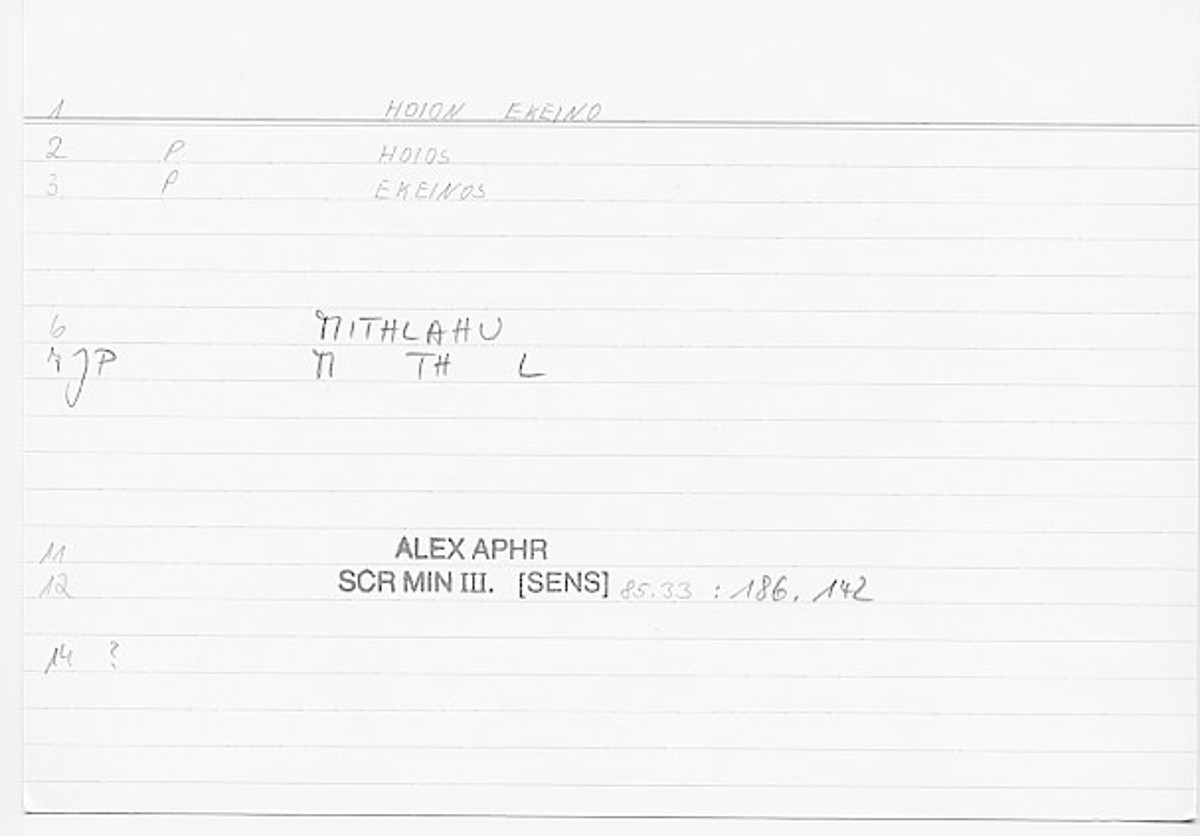 1 HOION EKEINO
2 P HOIOS
3 P EKEINOS
6 MITHLAHU
7 JP M TH L
11 ALEX APHR
12 SCR MIN III. [SENS] 85.33 : 186. 142
14 ?